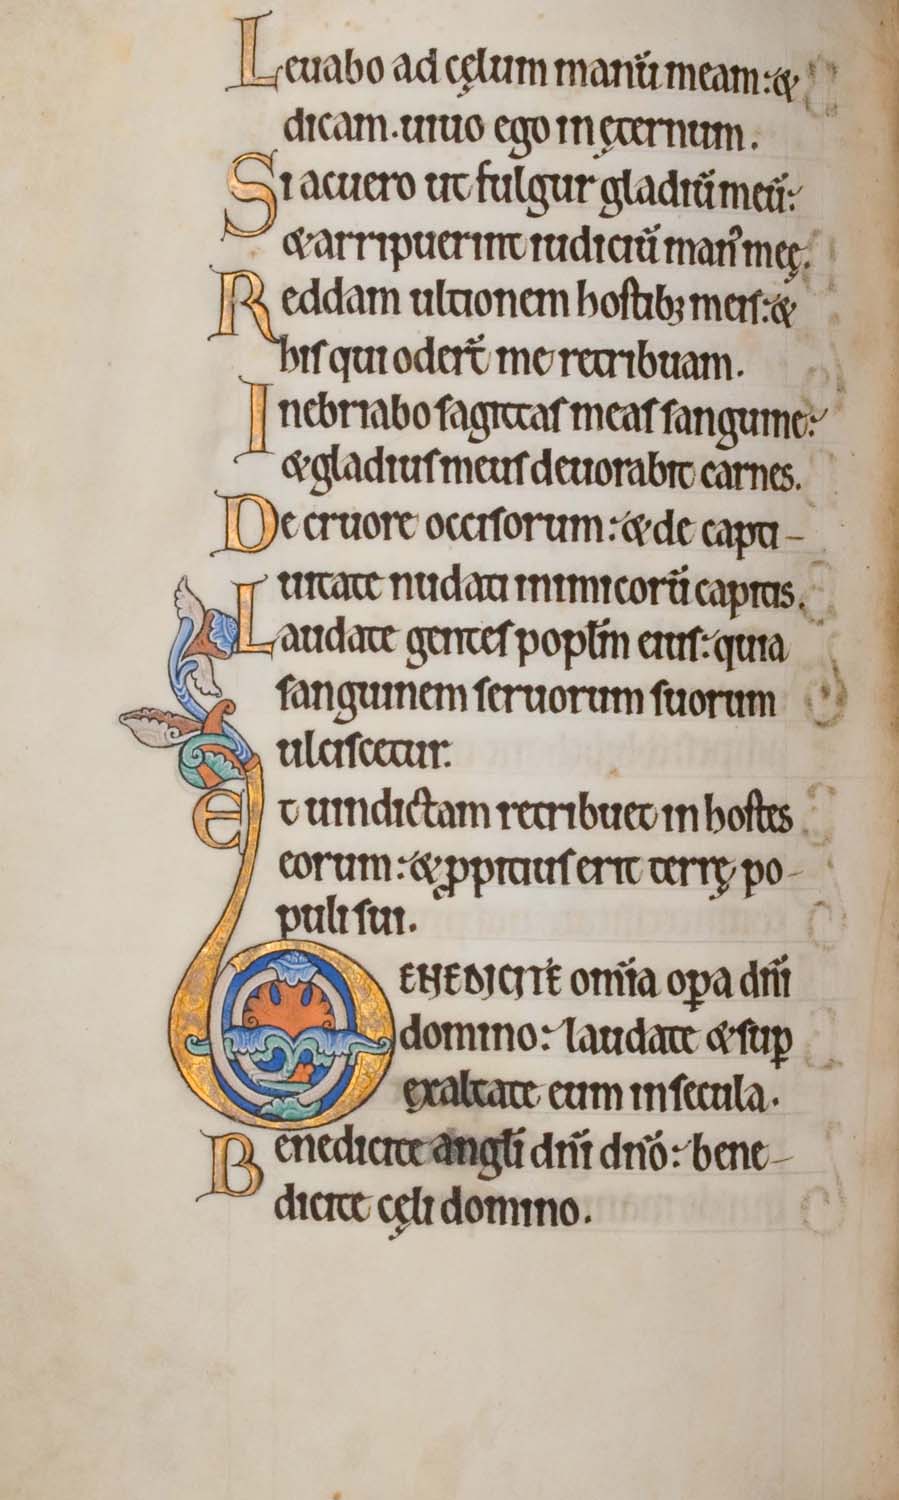 Leuabo ad cęlum manū meam: &
dicam. uiuo ego in ęternum.
Si acuero ut fulgur gladiū meū:
& arripuerint iudiciū man᾽ meę.
Reddam ultionem hostibꝫ meis: &
his qui oder̄t me retribuam.
Inebriabo sagittas meas sanguine:
& gladius meus deuorabit carnes.
De cruore occisorum: & de capti-
uitate nudati inimicorū capitis.
Laudate gentes popl̄m eius: quia
sanguinem seruorum suorum
ulciscetur.
Et uindictam retribuet in hostes
eorum: & ꝓpitius erit terrę po-
puli sui.
BENEDICITE om̄ia oꝑa dn̄i
domino: laudate & suꝑ
exaltate eum in secula.
Benedicite angl̄i dn̄i dn̄o: bene-
dicite cęli domino.